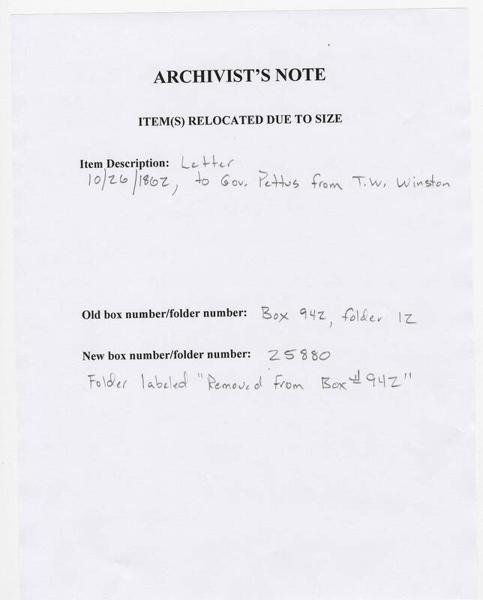 ARCHIVIST'S NOTE
ITEM(S) RELOCATED DUE TO SIZE
Item Description: Letter
10/26/1862, to Gov. Pettus from T.W. Winston
Old box number/folder number: Box 942, folder 12
New box number/folder number: 25880
Folder labeled "Removed from Box # 942"